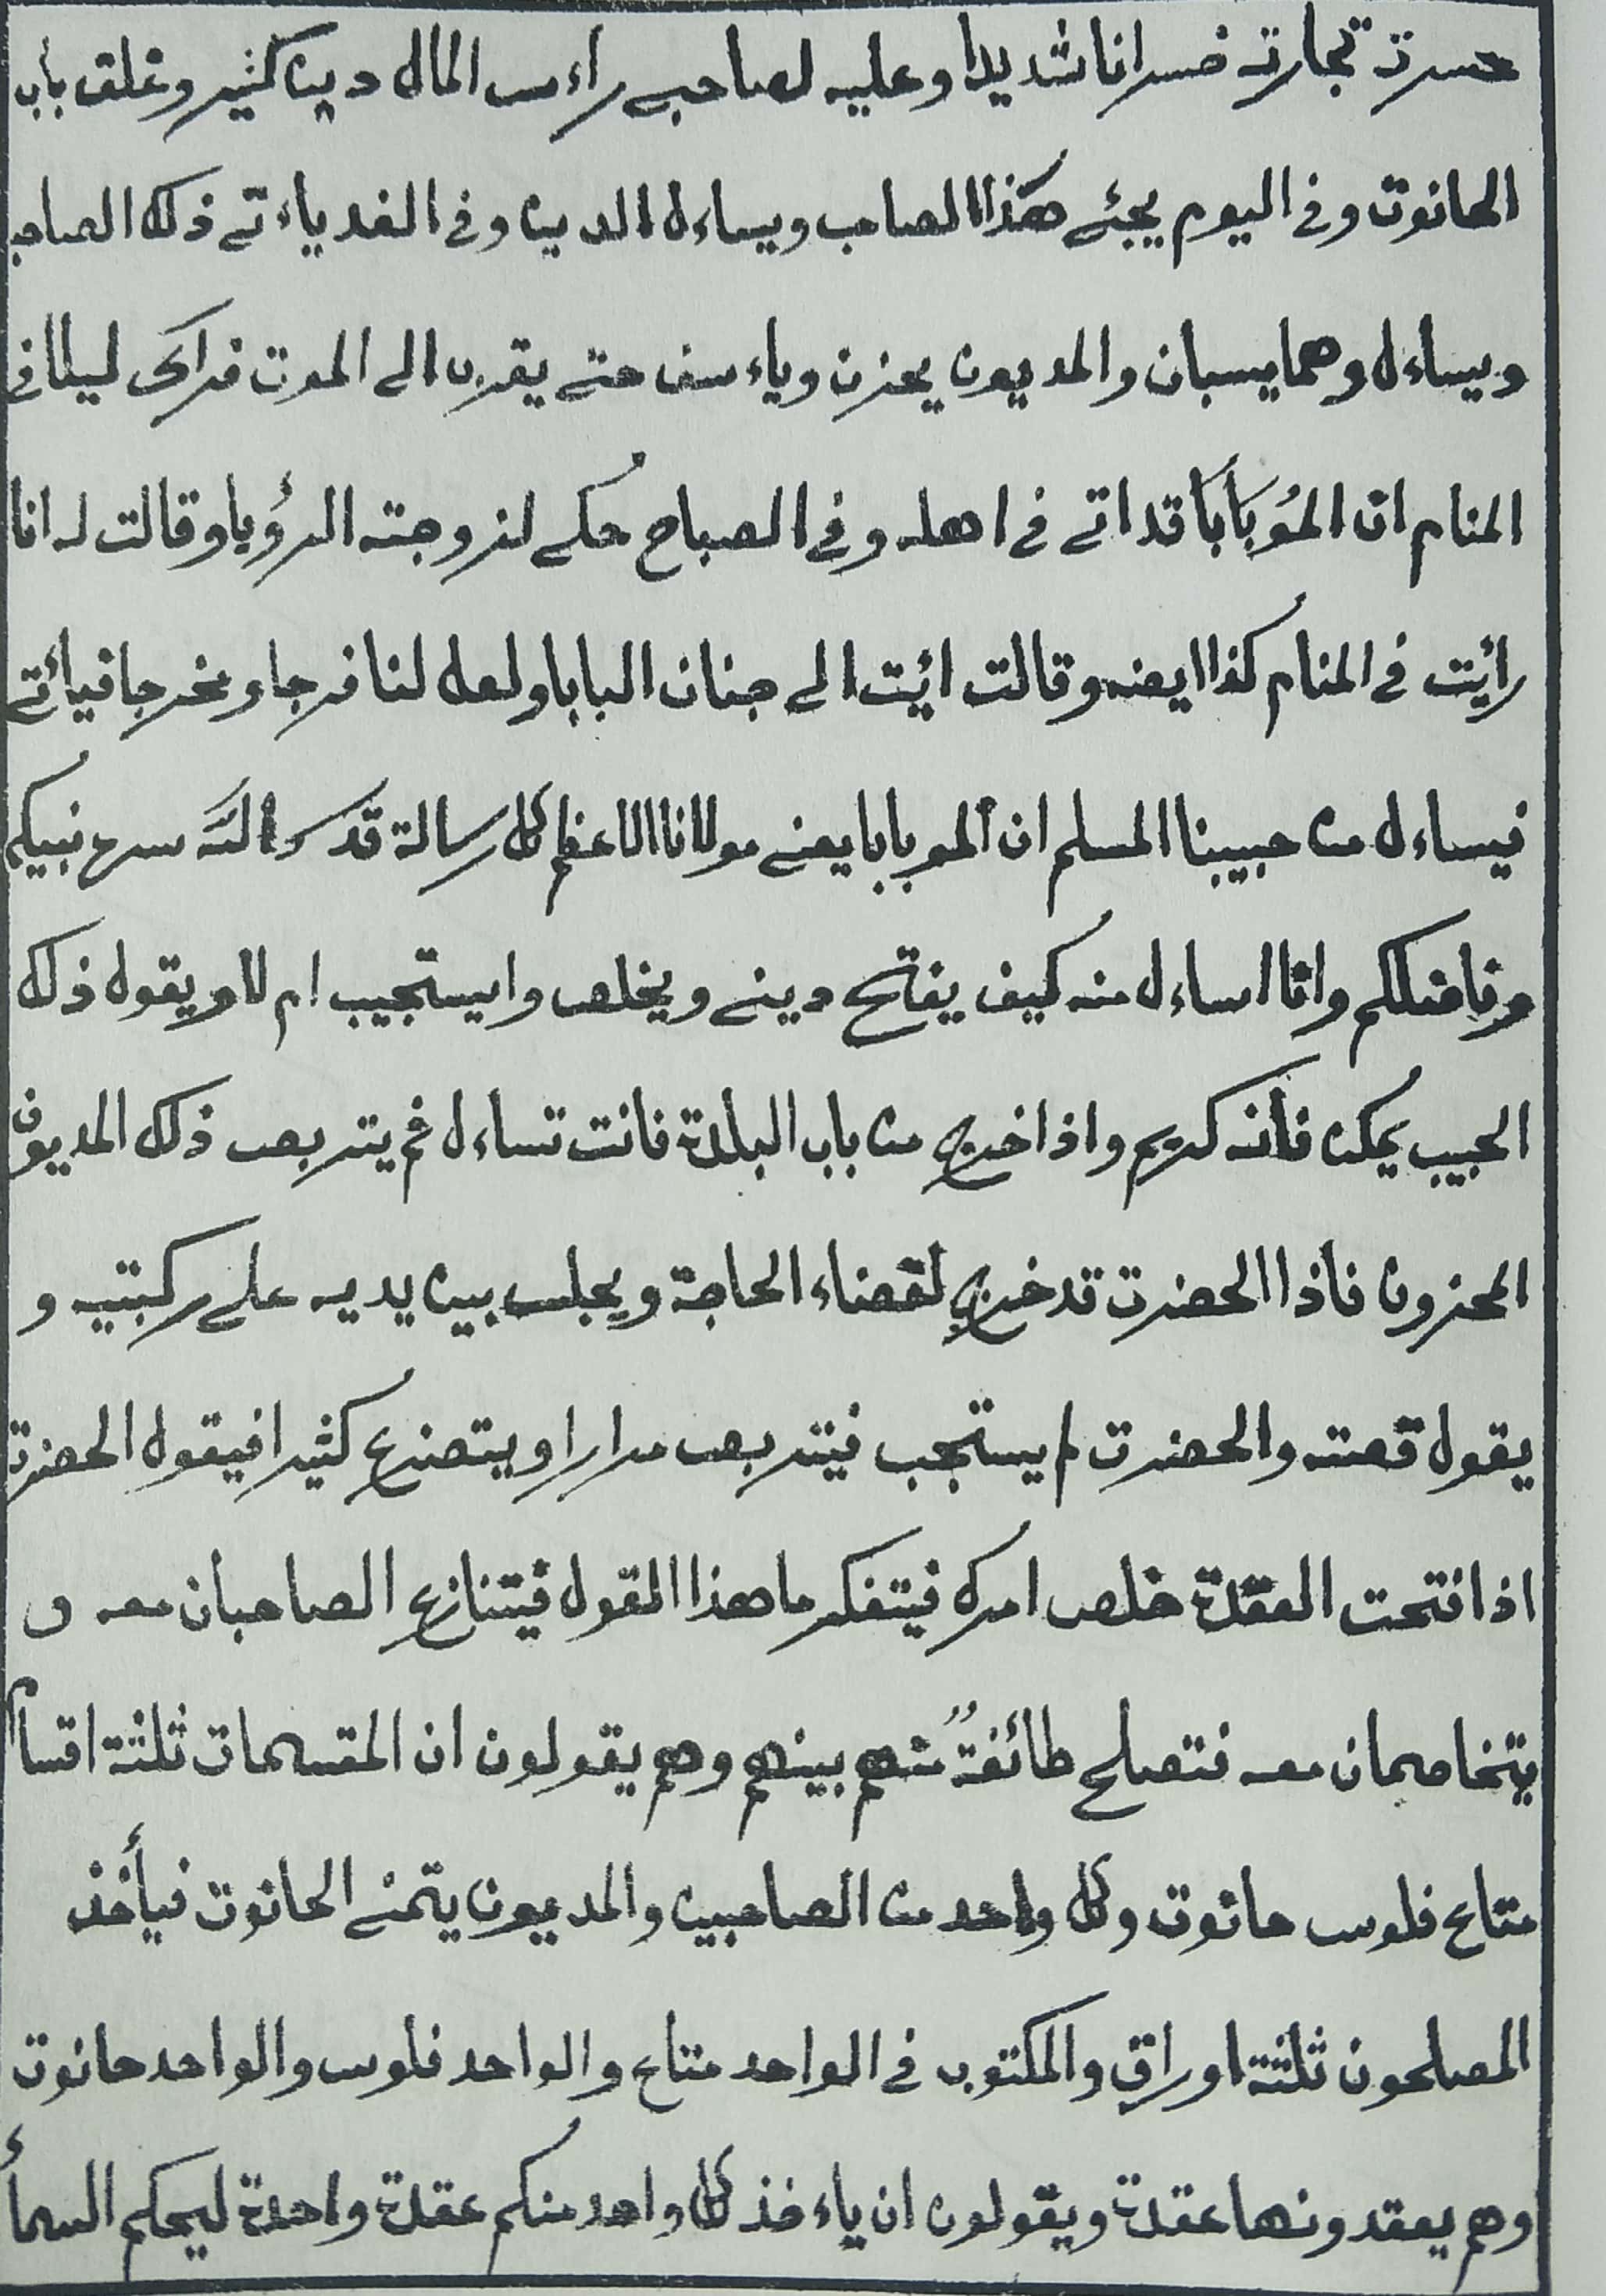 خسرت تجارته خسرانا شديدا وعليه لصاحبے راءس المال دين كثير وغلق باب
الحانوت وفى اليوم يجئے هكذا الصاحب ويساءل الدين وفى الغد ياءتے ذلك الصاحب
ويساءل وهما يسبان والمديون يحزن وياءسف حتے يقرب الے الموت فراى ليلا فى
المنام ان المُوبَابَا قد اتے فے اهله وفے الصباح حُكے لزوجته الرؤيا وقالت له انا
رأيت فے المنام كذا ايضه وقالت ائت الے جنان البابا ولعل لنا فرجا ومخرجا فيأتے
فيساءل من حبيبنا المسلم ان الموبابا يعنے مولانا الاعظم كل رسالة قدس الله سره نبيكم
وفاضلكم وانا اساءل منه كيف يفتح دينے ويخلص وايستجيب ام لا ويقول ذلك
الحبيب يمكن فأنه كريم واذا خرج من باب البلدة فانت تساءل ثم يتربص ذلك المديون
المحزون فاذا الحضرت قد خرج لقضاء الحاجة ويجلس بين يديه علے ركبتيه و
يقول قصته والحضرت لم يستجب فيتربص مرارا ويتضرع كثيرا فيقول الحضرت
اذا فتحت العقدة خلص امرك فيتفكر ما هذا القول فيتنازع الصاحبان معه و
يتخاصمان معه فتصلح طائفةٌ منهم بينهم وهم يقولون ان المقسمات ثلثة اقسام
متاع فلوس حانوت وكل واحد من الصاحبين والمديون يتمنے الحانوت فيأخذ
المصلحون ثلثة اوراق والمكتوب فے الواحد متاع والواحد فلوس والواحد حانوت
وهم يعقدونها عقدة ويقولون ان ياءخذ كل واحد منكم عقدة واحدة ليحكم السمأ